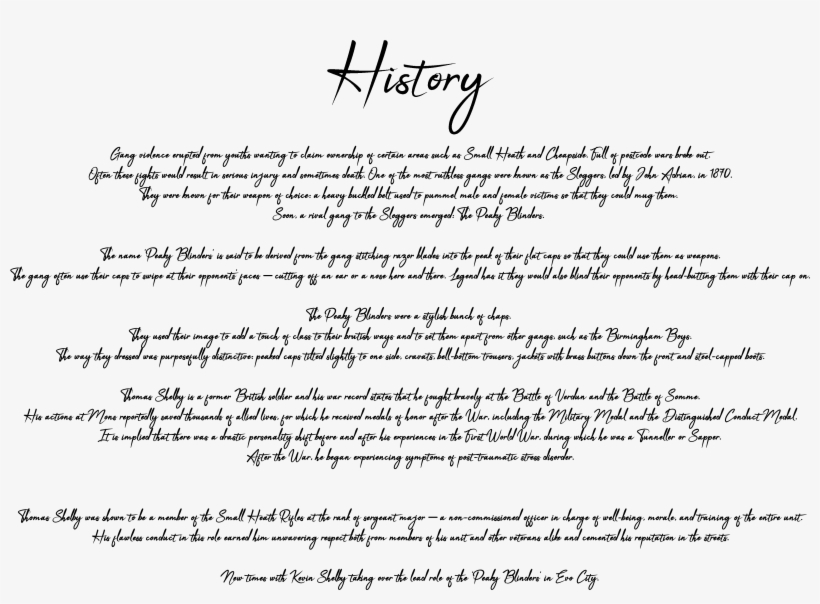 History
Gang violence erupted from youths wanting to claim ownership of certain areas such as Small Heath and Cheapside. Full of postcode wars broke out.
Often these fights would result in serious injury and sometimes death. One of the most ruthless gangs were known as the Sloggers, led by John Adrian, in 1870.
They were known for their weapon of choice; a heavy buckled belt used to pummel male and female victims so that they could mug them.
Soon, a rival gang to the Sloggers emerged: The Peaky Blinders.
The name 'Peaky Blinders' is said to be derived from the gang stitching razor blades into the peak of their flat caps so that they could use them as weapons.
The gang often use their caps to swipe at their opponents' faces – cutting off an ear or a nose here and there. Legend has it they would also blind their opponents by head-butting them with their cap on.
The Peaky Blinders were a stylish bunch of chaps.
They used their image to add a touch of class to their brutish ways and to set them apart from other gangs, such as the Birmingham Boys.
The way they dressed was purposefully distinctive: peaked caps tilted slightly to one side, cravats, bell-bottom trousers, jackets with brass buttons down the front and steel-capped boots.
Thomas Shelby is a former British soldier and his war record states that he fought bravely at the Battle of Verdun and the Battle of Somme.
His actions at Mons reportedly saved thousands of allied lives, for which he received medals of honor after the War, including the Military Medal and the Distinguished Conduct Medal.
It is implied that there was a drastic personality shift before and after his experiences in the First World War, during which he was a Tunneller or Sapper.
After the War, he began experiencing symptoms of post-traumatic stress disorder.
Thomas Shelby was shown to be a member of the Small Heath Rifles at the rank of sergeant major – a non-commissioned officer in charge of well-being, morale, and training of the entire unit.
His flawless conduct in this role earned him unwavering respect both from members of his unit and other veterans alike and cemented his reputation in the streets.
New times with Kevin Shelby taking over the lead role of the 'Peaky Blinders' in Evo City.